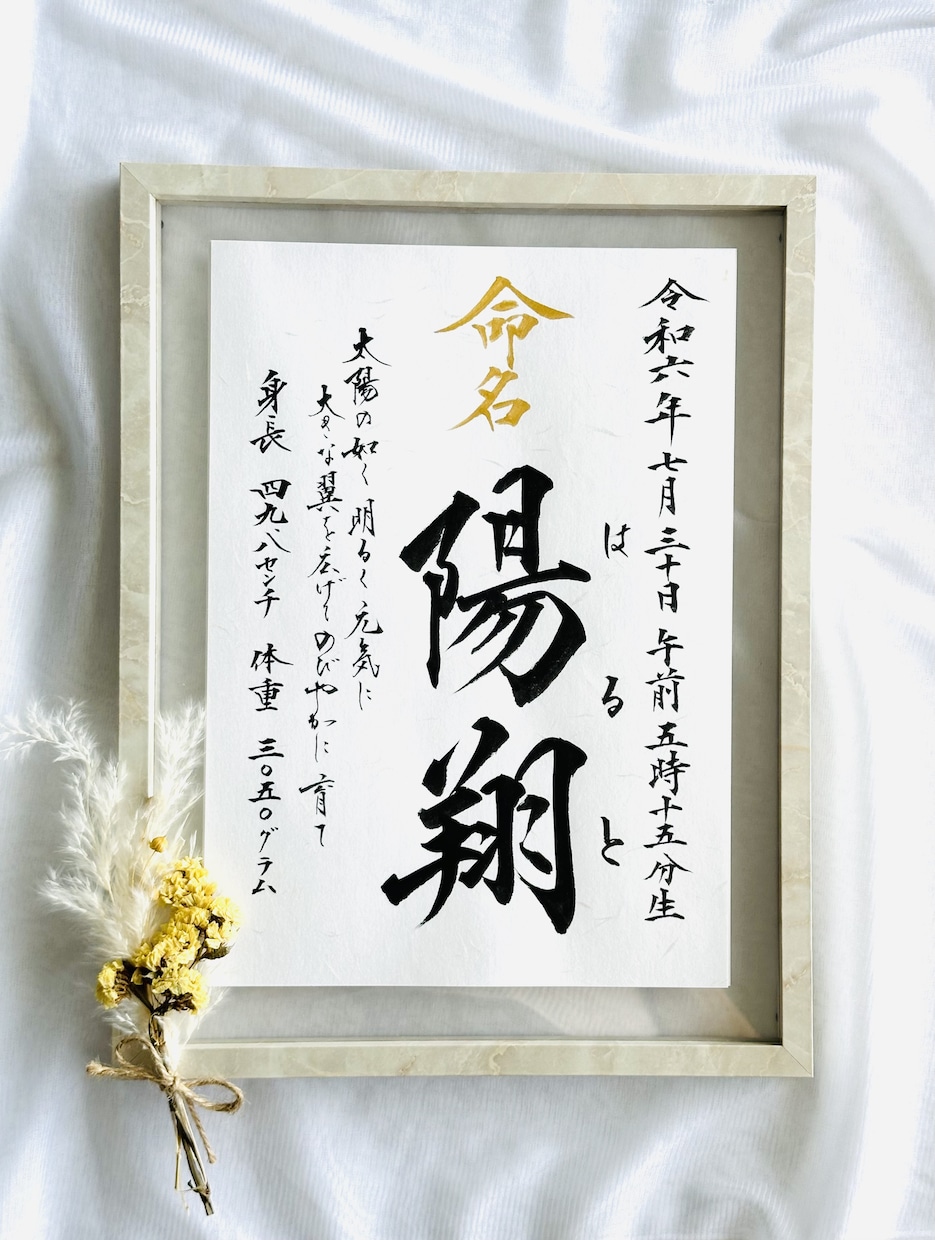 令和六年七月三十日午前五時十五分生
はると
命名
陽翔
太陽の如く明るく元気に
大きな翼を広げてのびやかに育て
身長 四九.八センチ 体重 三〇五〇グラム